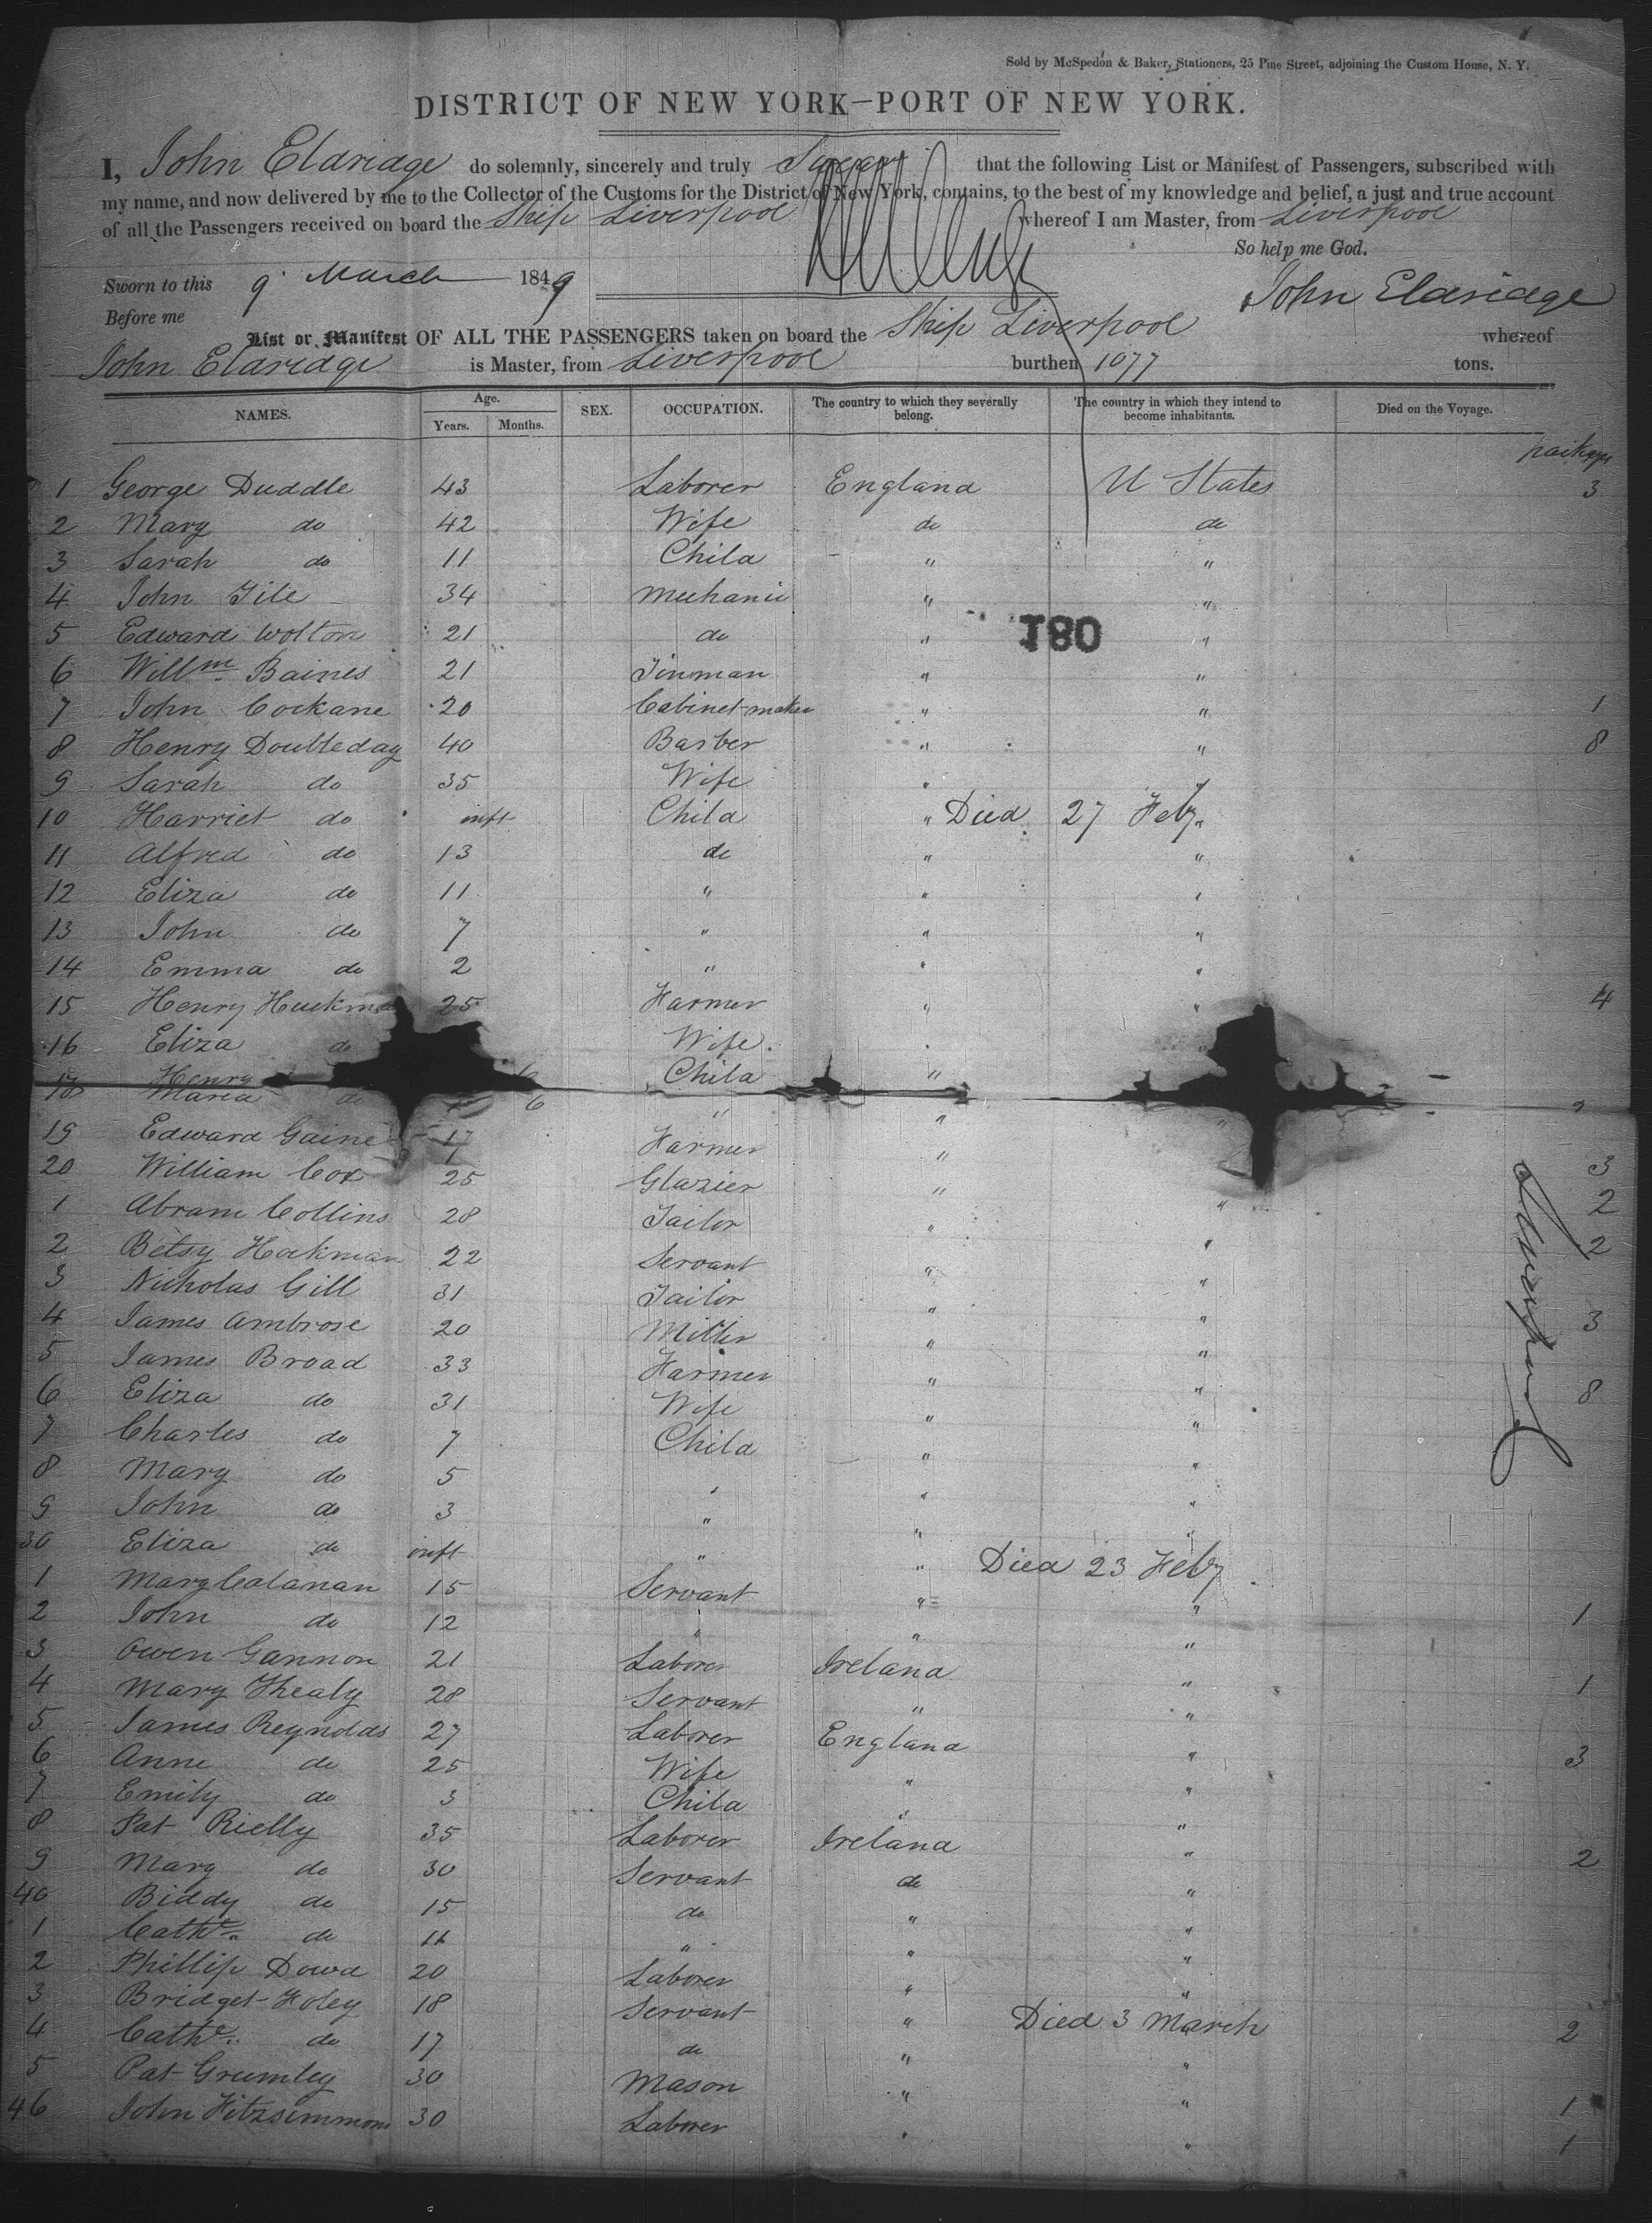 Sold by McSpedon & Baker, Stationers, 25 Pine Street, adjoining the Custom House, N. Y.
DISTRICT OF NEW YORK—PORT OF NEW YORK.
I, John Eldridge do solemnly, sincerely and truly Swear that the following List or Manifest of Passengers, subscribed with
my name, and now delivered by me to the Collector of the Customs for the District of New York, contains, to the best of my knowledge and belief, a just and true account
of all the Passengers received on board the Ship Liverpool whereof I am Master, from Liverpool
So help me God.
Sworn to this 9 March 1849
John Eldridge
Before me
List or Manifest OF ALL THE PASSENGERS taken on board the Ship Liverpool whereof
John Eldridge is Master, from Liverpool burthen 1077 tons.
NAMES. Age. Years. Months. SEX. OCCUPATION. The country to which they severally belong. The country in which they intend to become inhabitants. Died on the Voyage.
1 George Duddle 43 Laborer England U States 3
2 Mary do 42 Wife do do
3 Sarah do 11 Child " "
4 John 34 Mechanic " "
5 Edward Wolton 21 do " "
180
6 Willm Baines 21 Tinman " "
7 John Cockane 20 Cabinet maker " " 1
8 Henry Doubleday 40 Barber " " 8
9 Sarah do 35 Wife " "
10 Harriet do inft Child " Died 27 Feby "
11 Alfred do 13 do " "
12 Eliza do 11 " " "
13 John do 7 " " "
14 Emma do 2 " " "
15 Henry 25 Farmer " " 4
16 Eliza do Wife " "
Henry 6 Child "
18 Maria do 6 " " "
19 Edward Gaine 17 Farmer " 3
20 William Cox 25 Glazier " " 2
1 Abram Collins 28 Tailor " " 2
2 Betsy Hockman 22 Servant " "
3 Nicholas Gill 31 Tailor " "
4 James Ambrose 20 Miller " " 3
5 James Broad 33 Farmer " " 8
6 Eliza do 31 Wife " "
7 Charles do 7 Child " "
8 Mary do 5 " " "
9 John do 3 " " "
30 Eliza do inft " " Died 23 Feby
1 Mary Calanan 15 Servant " " 1
2 John do 12 " " "
3 Owen Gannon 21 Laborer Ireland " 1
4 Mary Thealy 28 Servant " "
5 James Reynolds 27 Laborer England " 3
6 Anne do 25 Wife " "
7 Emily do 3 Child " "
8 Pat Rielly 35 Laborer Ireland " 2
9 Mary do 30 Servant do "
40 Biddy do 15 do " "
1 Cathe do 11 " " "
2 Phillip Dowd 20 Laborer " "
3 Bridget Foley 18 Servant " Died 3 March 2
4 Cathe do 17 do " "
5 Pat Grumley 30 Mason " " 1
46 John Fitzsimmons 30 Laborer " " 1